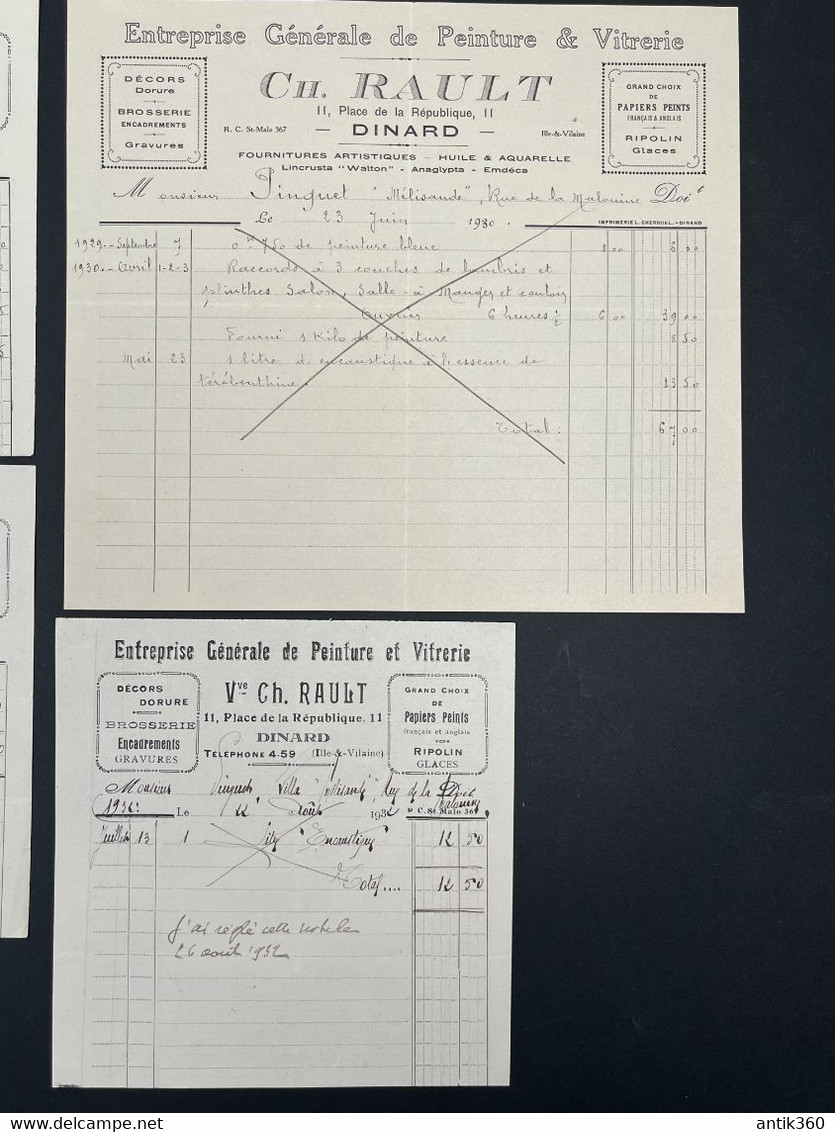 Entreprise Générale de Peinture & Vitrerie
DÉCORS
Dorure
BROSSERIE
ENCADREMENTS
Gravures
CH. RAULT
11, Place de la République, 11
R. C. St-Malo 367
— DINARD —
Ille-&-Vilaine
GRAND CHOIX
DE
PAPIERS PEINTS
FRANÇAIS & ANGLAIS
RIPOLIN
Glaces
FOURNITURES ARTISTIQUES — HUILE & AQUARELLE
Lincrusta "Walton" - Anaglypta - Emdéca
Monsieur Pinguet "Mélisande", Rue de la Malouine Doit
Le 23 Juin 1930.
IMPRIMERIE L. CHERRUEL. - DINARD
1929.- Septembre 7 0k 750 de peinture bleue 8 00 6 00
1930.- Avril 1-2-3 Raccords à 3 couches de lambris et
plinthes Salon, Salle-à Manger et couloir
Ouvrier 6 heures 1/2 6 00 39 00
Fourni 1 Kilo de peinture 8 50
Mai 23 1 litre d'encaustique à l'essence de
térébenthine. 13 50
Total: 67 00
Entreprise Générale de Peinture et Vitrerie
DÉCORS
DORURE
BROSSERIE
Encadrements
GRAVURES
Vve Ch. RAULT
11, Place de la République, 11
DINARD
TÉLÉPHONE 4.59 (Ille-&-Vilaine)
GRAND CHOIX
de
Papiers Peints
français et anglais
RIPOLIN
GLACES
Monsieur Pinguet Villa "Mélisande", Rue de la Malouine Doit
1932 Le 22 Août 1932
R. C. St-Malo 367
Juillet 13 1 litre Encaustique 12 50
Total.... 12 50
J'ai réglé cette note le
26 août 1932
antik360